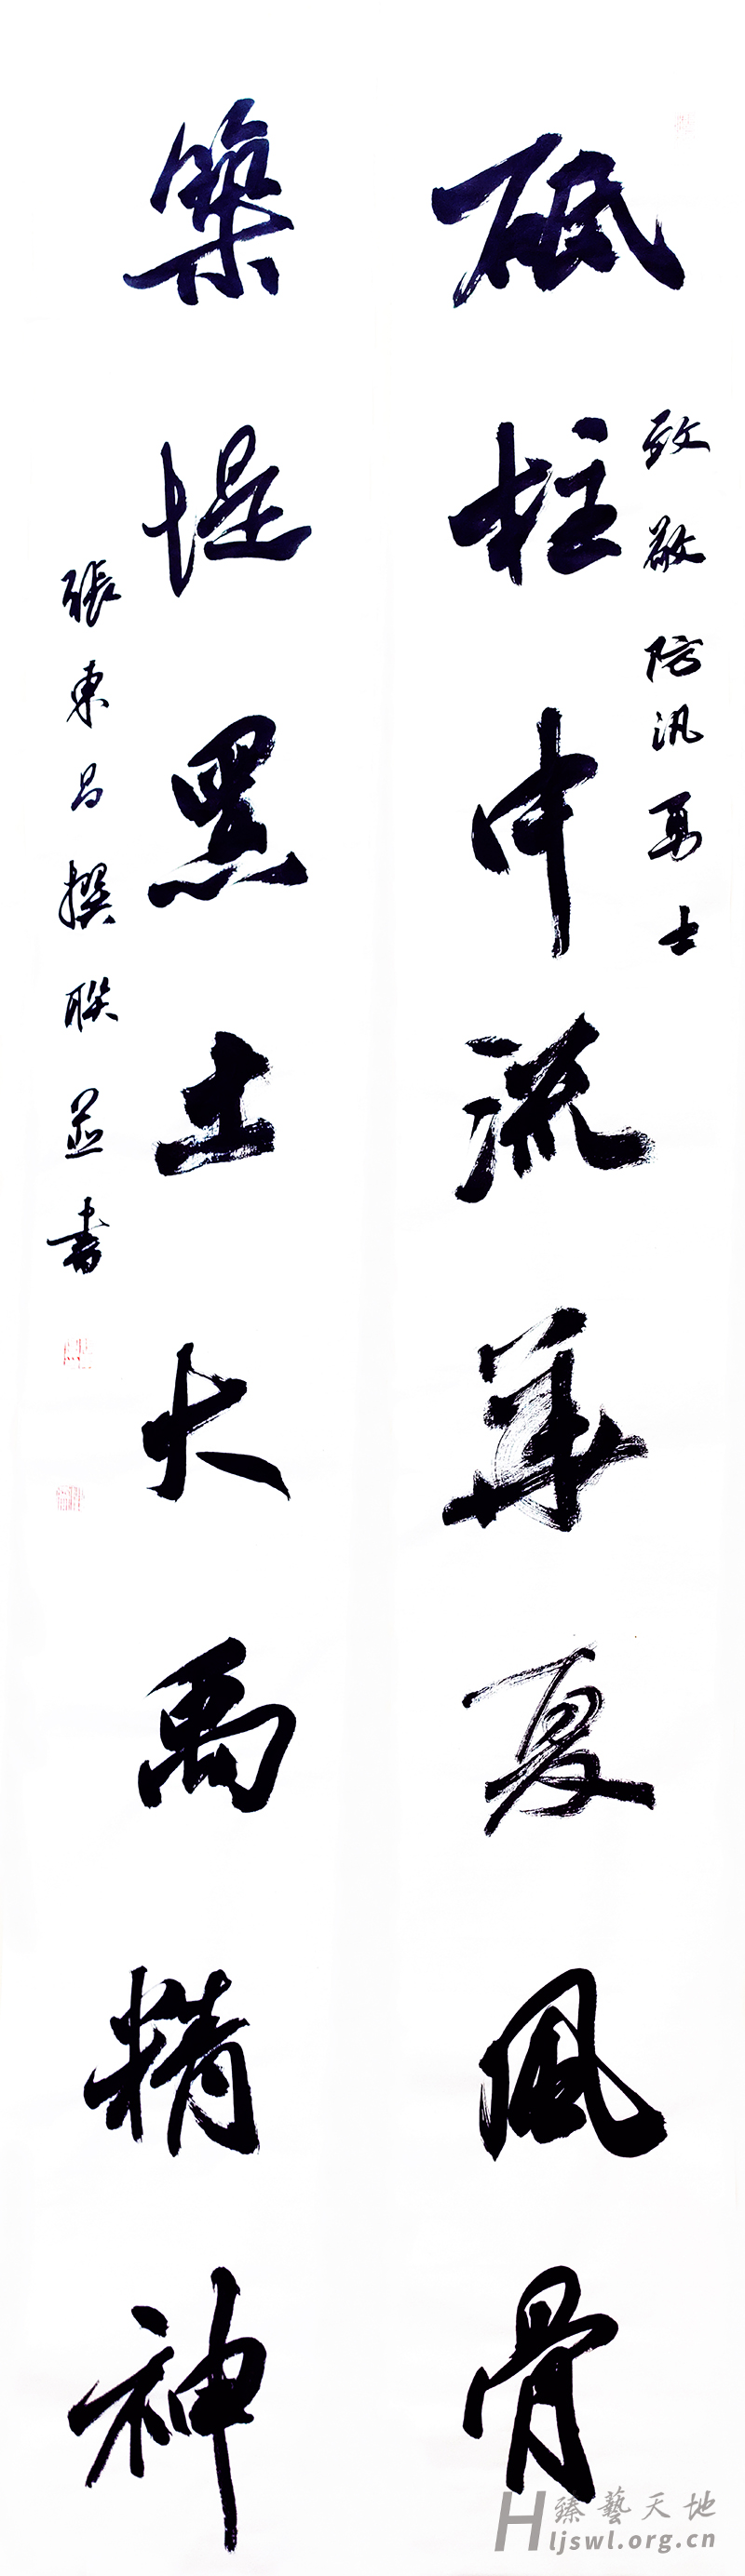 致敬防汛勇士
砥柱中流華夏風骨
築堤黑土大禹精神
張東昌撰聯並書
臻藝天地
Hljswl.org.cn